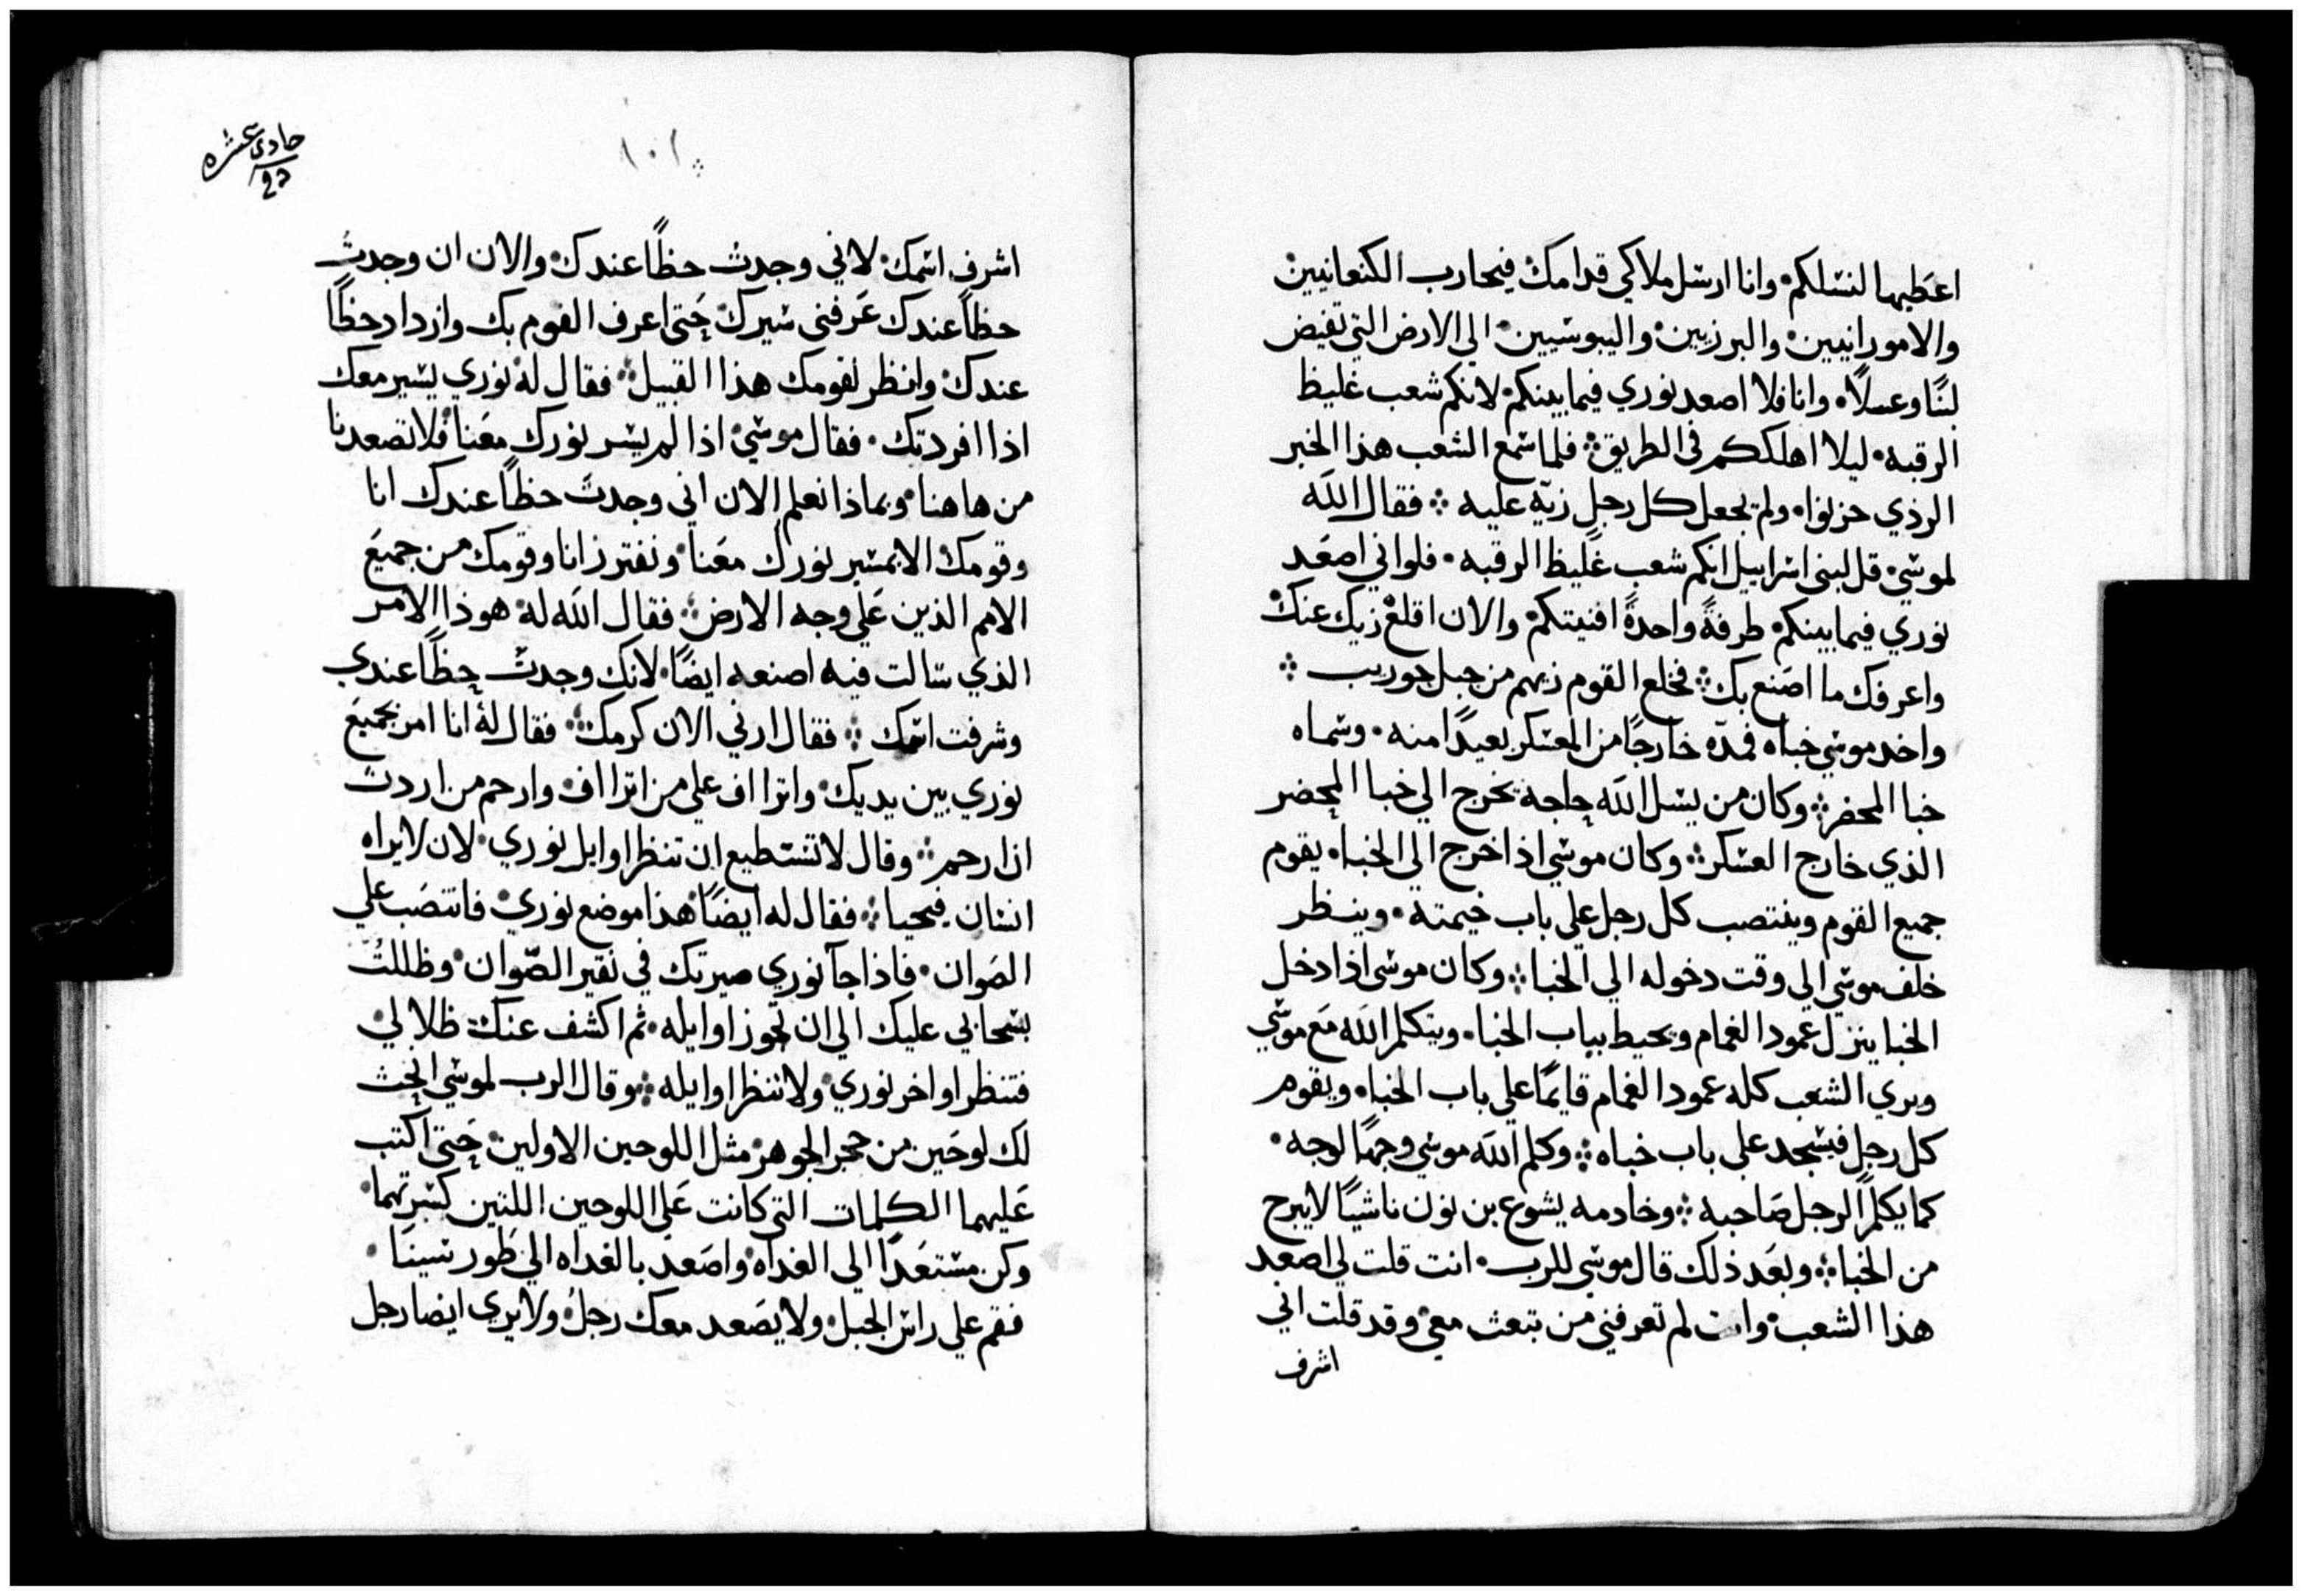 اعطيها لنسلكم وانا ارسل ملاكي قدامك فيحارب الكنعانيين
والامورانيين والبرزيين واليبوسيين الي الارض التي تفيض
لبنًا وعسلاً وانا فلا اصعد نوري فيما بينكم لانكم شعب غليظ
الرقبه ليلا اهلككم في الطريق فلما سمع الشعب هذا الخبر
الردي حزنوا ولم يجعل كل رجل زيّه عليه فقال الله
لموسي قل لبني اسراييل انكم شعب غليظ الرقبه فلو اني اصعد
نوري فيما بينكم طرفةً واحدةً افنيتكم والان اقلع زيك عنك
واعرفك ما اصنع بك فخلع القوم زيهم من جبل حوريب
واخد موسي خباه فمدّه خارجًا من المعسكر بعيدًا منه وسماه
خبا المحضر وكان من يسل الله حاجه يخرج الي خبا المحضر
الذي خارج العسكر وكان موسي اذا خرج الي الخبا يقوم
جميع القوم وينتصب كل رجل علي باب خيمته وينظر
خلف موسي الي وقت دخوله الي الخبا وكان موسي اذا دخل
الخبا ينزل عمود الغمام ويحيط بباب الخبا ويتكلم الله مع موسي
ويري الشعب كله عمود الغمام قايمًا علي باب الخبا ويقوم
كل رجل فيسجد علي باب خباه وكلم الله موسي وجهًا لوجه
كما يكلم الرجل صاحبه وخادمه يشوع بن نون ناشيًا لا يبرح
من الخبا وبعد ذلك قال موسي للرب انت قلت لي اصعد
هذا الشعب وانت لم تعرفني من تبعث معي وقد قلت اني
اشرف
حادي عشره
١٠١
اشرف اسمك لاني وجدت حظًا عندك والان ان وجدتُ
حظًا عندك عَرفني سيرك حتي اعرف القوم بك وازداد حظًا
عندك وانظر لقومك هذا القبيل فقال له نوري يسير معك
اذا افردتك فقال موسي اذا لم يسر نورك معنا فلا تصعدنا
من هاهنا وبماذا نعلم الان اني وجدت حظًا عندك انا
وقومك الا بمسير نورك معنا ونفترز انا وقومك من جميع
الامم الذين علي وجه الارض فقال الله له هوذا الامر
الذي سالت فيه اصنعه ايضًا لانك وجدت حظًا عندي
وشرفت اسمك فقال ارني الان كرمك فقال له انا امر بجميع
نوري بين يديك واترااف علي من اترااف وارحم من اردت
ان ارحم وقال لا تستطيع ان تنظر اوايل نوري لان لا يراه
انسان فيحيا فقال له ايضًا هذا موضع نوري فانتصب علي
الصوان فاذا جآ نوري صيرتك في نقير الصّوان وظللتُ
بسحابي عليك الي ان تجوز اوايله ثم اكشف عنك ظلالي
فتنظر اواخر نوري ولا تنظر اوايله وقال الرب لموسي انحت
لك لوحين من حجر الجوهر مثل اللوحين الاولين حتي اكتب
عليهما الكلمات التي كانت علي اللوحين اللتين كسرتهما
وكن مستعدًا الي الغداه واصعد بالغداه الي طور سينا
فقم علي راس الجبل ولا يصعد معك رجلُ ولا يري ايضا رجل